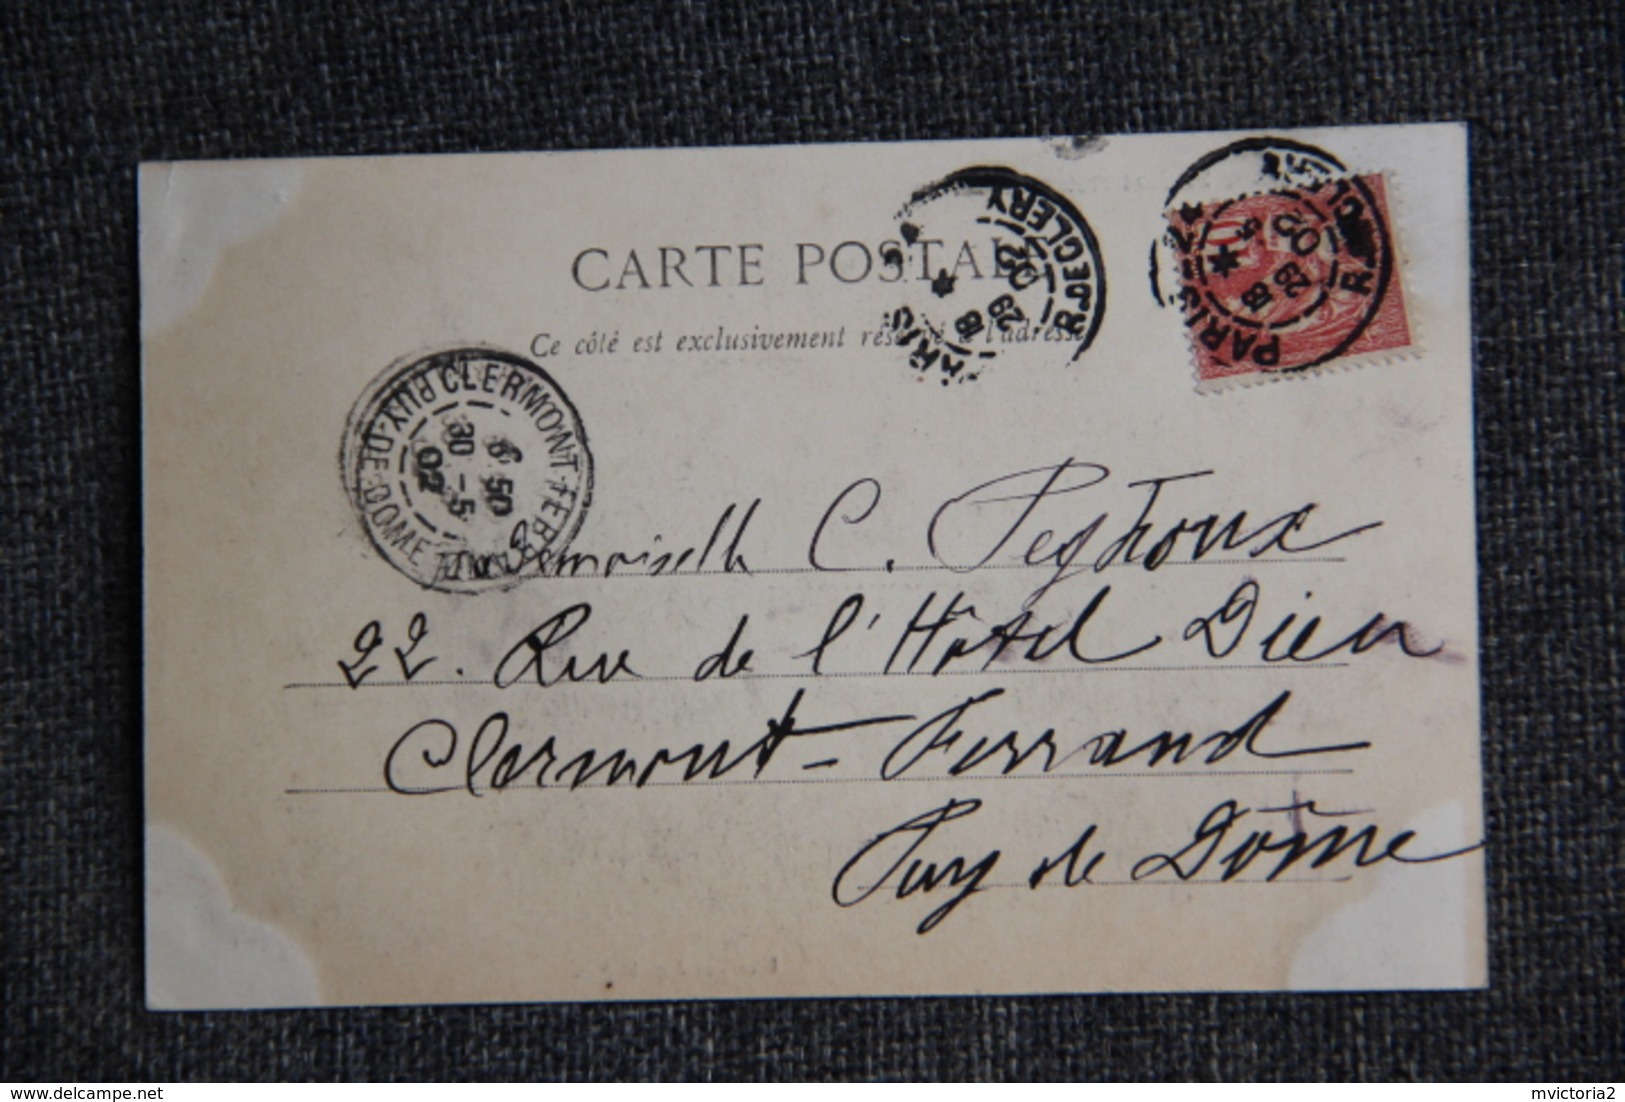 CARTE POSTALE
Ce côté est exclusivement réservé à l'adresse
PARIS * R. DE CLERY
18
29
02
PARIS - 24 * R. DE CLERY
18
29 5
02
10
CLERMONT-FERRAND PUY-DE-DOME
6 50
30 -5
02
Mademoiselle C. Peghoux
22. Rue de l'Hôtel Dieu
Clermont-Ferrand
Puy de Dôme
www.delcampe.net
mvictoria2